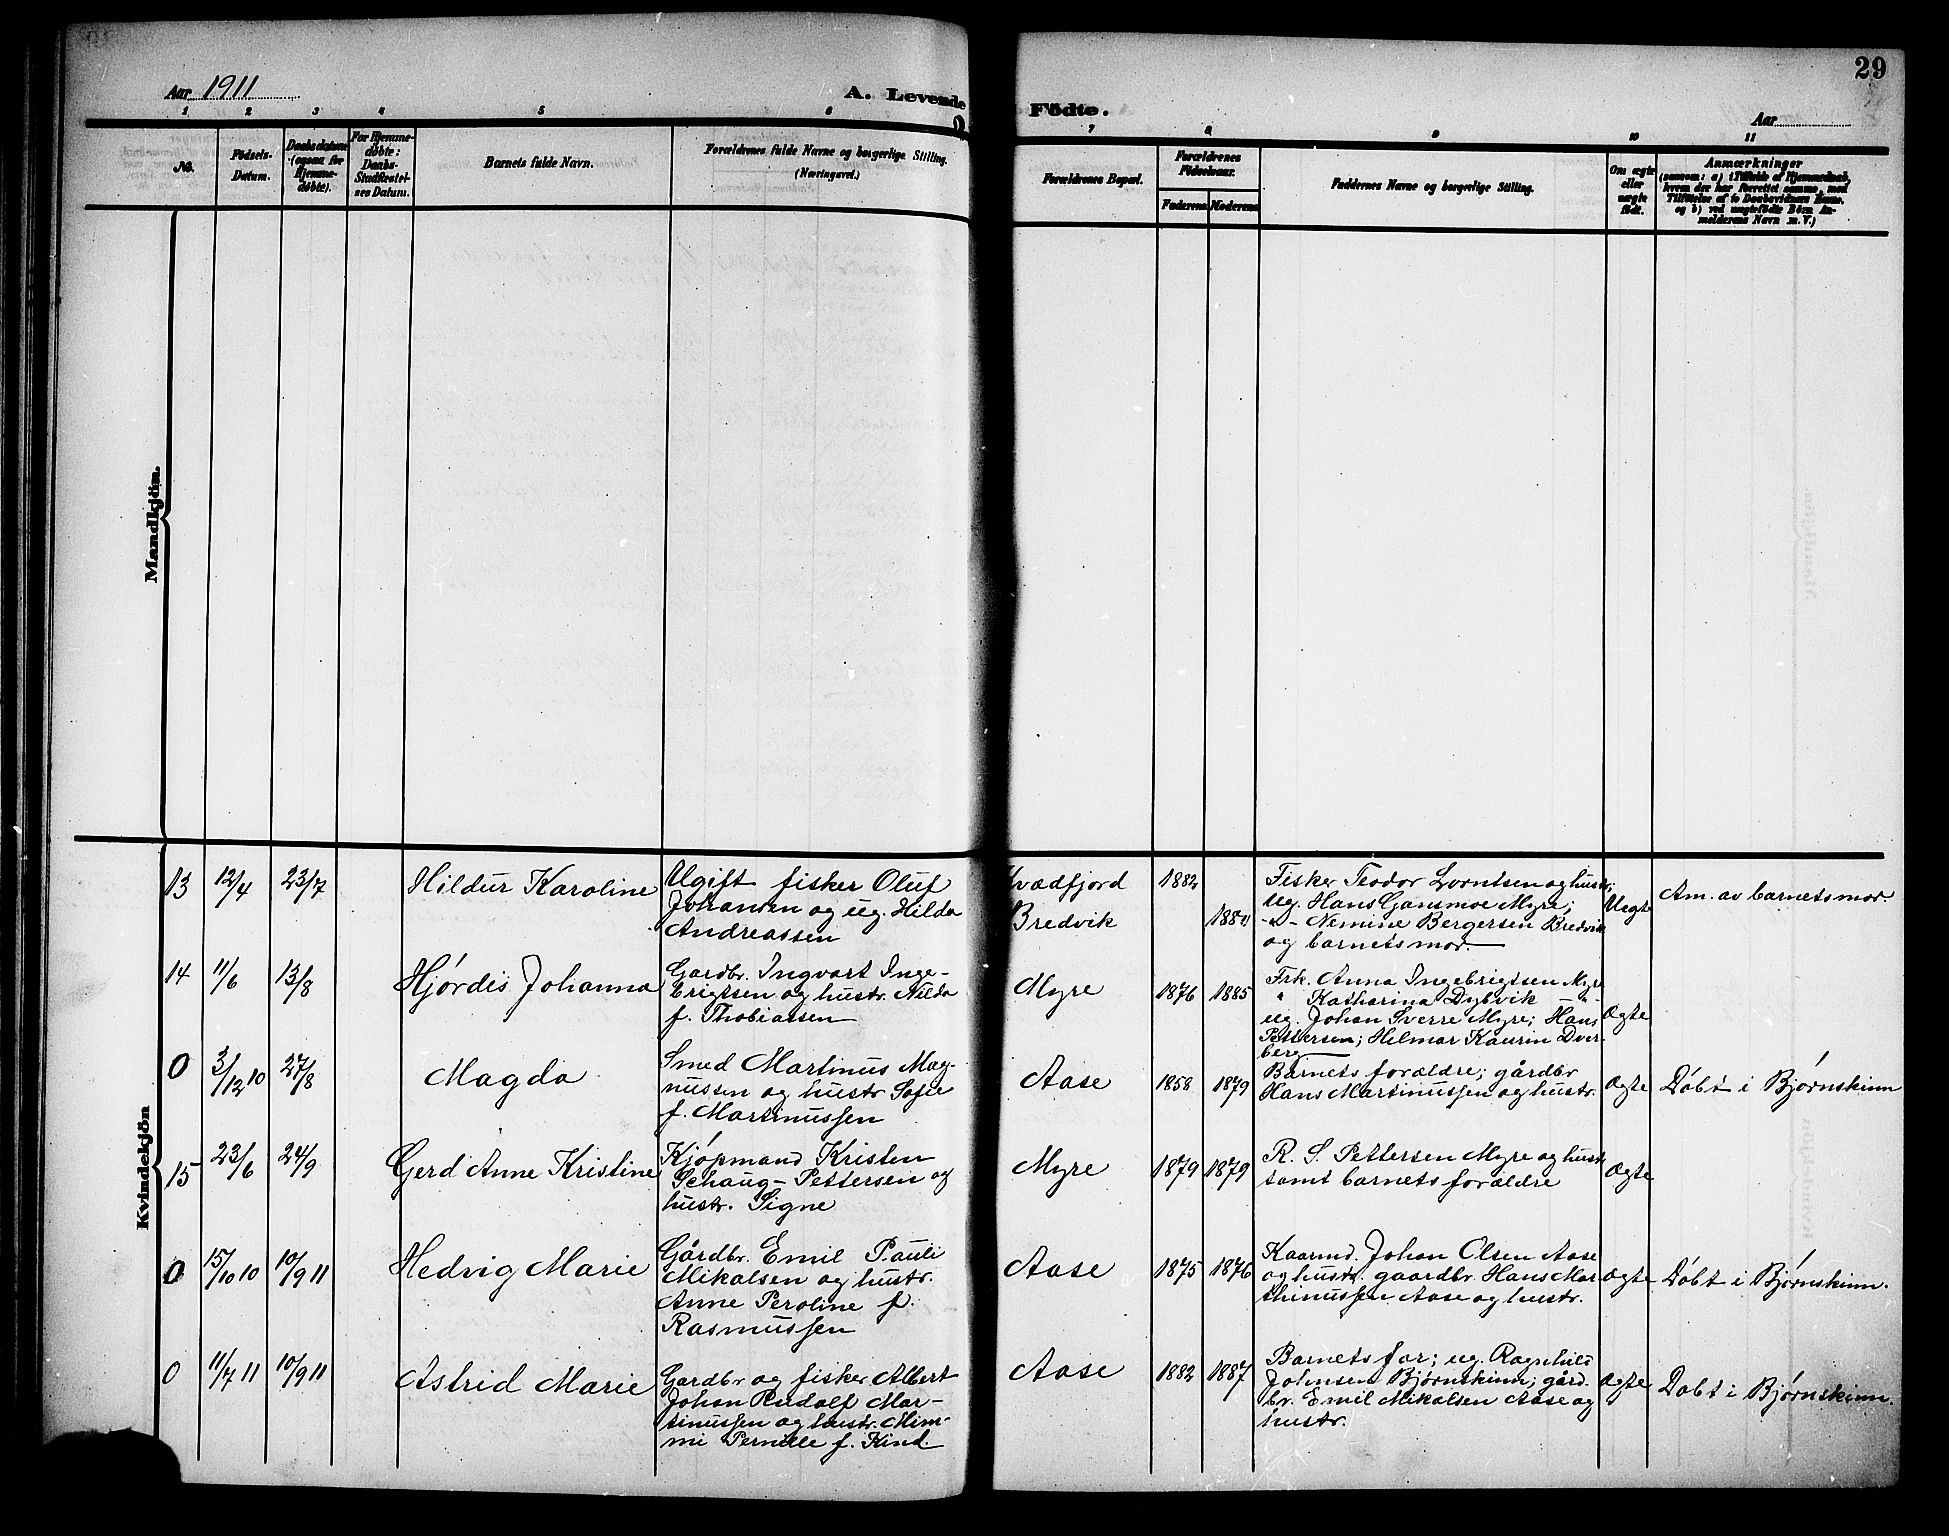 29
Aar 1911
A. Levende Födte.
Aar
1 2 3 4 5 6 7 8 9 10 11
No.
Födsels-
Datum.
Daabsdatum
(ogsaa for
Hjemme-
døbte).
For Hjemme-
døbte:
Daabs-
Stadfæstel-
ses Datum.
Barnets fulde Navn.
Forældrenes fulde Navne og borgerlige Stilling.
(Næringsvei.)
Forældrenes Bopæl.
Forældrenes
Fødselsaar.
Faderens Moderens
Faddernes Navne og borgerlige Stilling.
Om ægte
eller
uægte
født.
Anmærkninger
(saasom: a) i Tilfælde af Hjemmedaab,
hvem der har forrettet samme, med
Tilføielse af to Daabsvidners Navne,
og b) ved uægtefødte Børn An-
melderens Navn m. V.)
Mandkjön.
Kvindekjön
13 12/4 23/7 Hildur Karoline
Ugift fisker Oluf
Johansen og ug. Hilda
Andreassen
Kvædfjord
Bredvik
1882
Fisker Teodor Lorntsen og hustr;
ug. Hans Gansmoe Myre;
-"- Nemine Bergersen Bredvik
og barnets mor.
Uegte
Am. av barnets mor.
14 11/6 13/8 Hjørdis Johanna
Gardbr. Ingvart Inge-
brigtsen og hustr. Nilda
f. Thobiassen
Myre
1876 1885
Frk. Anna Ingebrigtsen Myre
" Katharina Dybvik -"-
ug. Johan Sverre Myre; Hans
Pettersen; Hilmar Kaurin Dver-
berg
Ægte
0 3/12 10 27/8 Magda
Smed Martinus Mag-
nussen og hustr Sofie
f. Martinussen
Aase
1858 1879
Barnets forældre; gårdbr
Hans Martinussen og hustr.
Ægte
Døbt i Bjørnskinn
15 23/6 24/9 Gerd Anne Kristine
Kjøpmand Kristen
Schaug-Pettersen og
hustr. Signe
Myre
1879 1879
R. S. Pettersen Myre og hustr
samt barnets forældre
Ægte
0 15/10 10 10/9 11 Hedvig Marie
Gårdbr. Emil Pauli
Mikalsen og hustr.
Anne Peroline f.
Rasmussen
Aase
1875 1876
Kaarmd. Johan Olsen Aase
og hustr. gaardbr. Hans Mar
thinussen Aase og hustr.
Ægte
Døbt i Bjørnskinn.
0 11/7 11 10/9 11 Astrid Marie
Gardbr og fisker Albert
Johan Rudolf Mar-
tinussen og hustr. Mim-
mi Pernille f. Kind.
Aase
1882 1887
Barnets far; ug. Ragnhild
Johnsen Bjørnskinn; gård.
br. Emil Mikalsen Aase og
hustr.
Ægte
Døbt i Bjørnskinn.